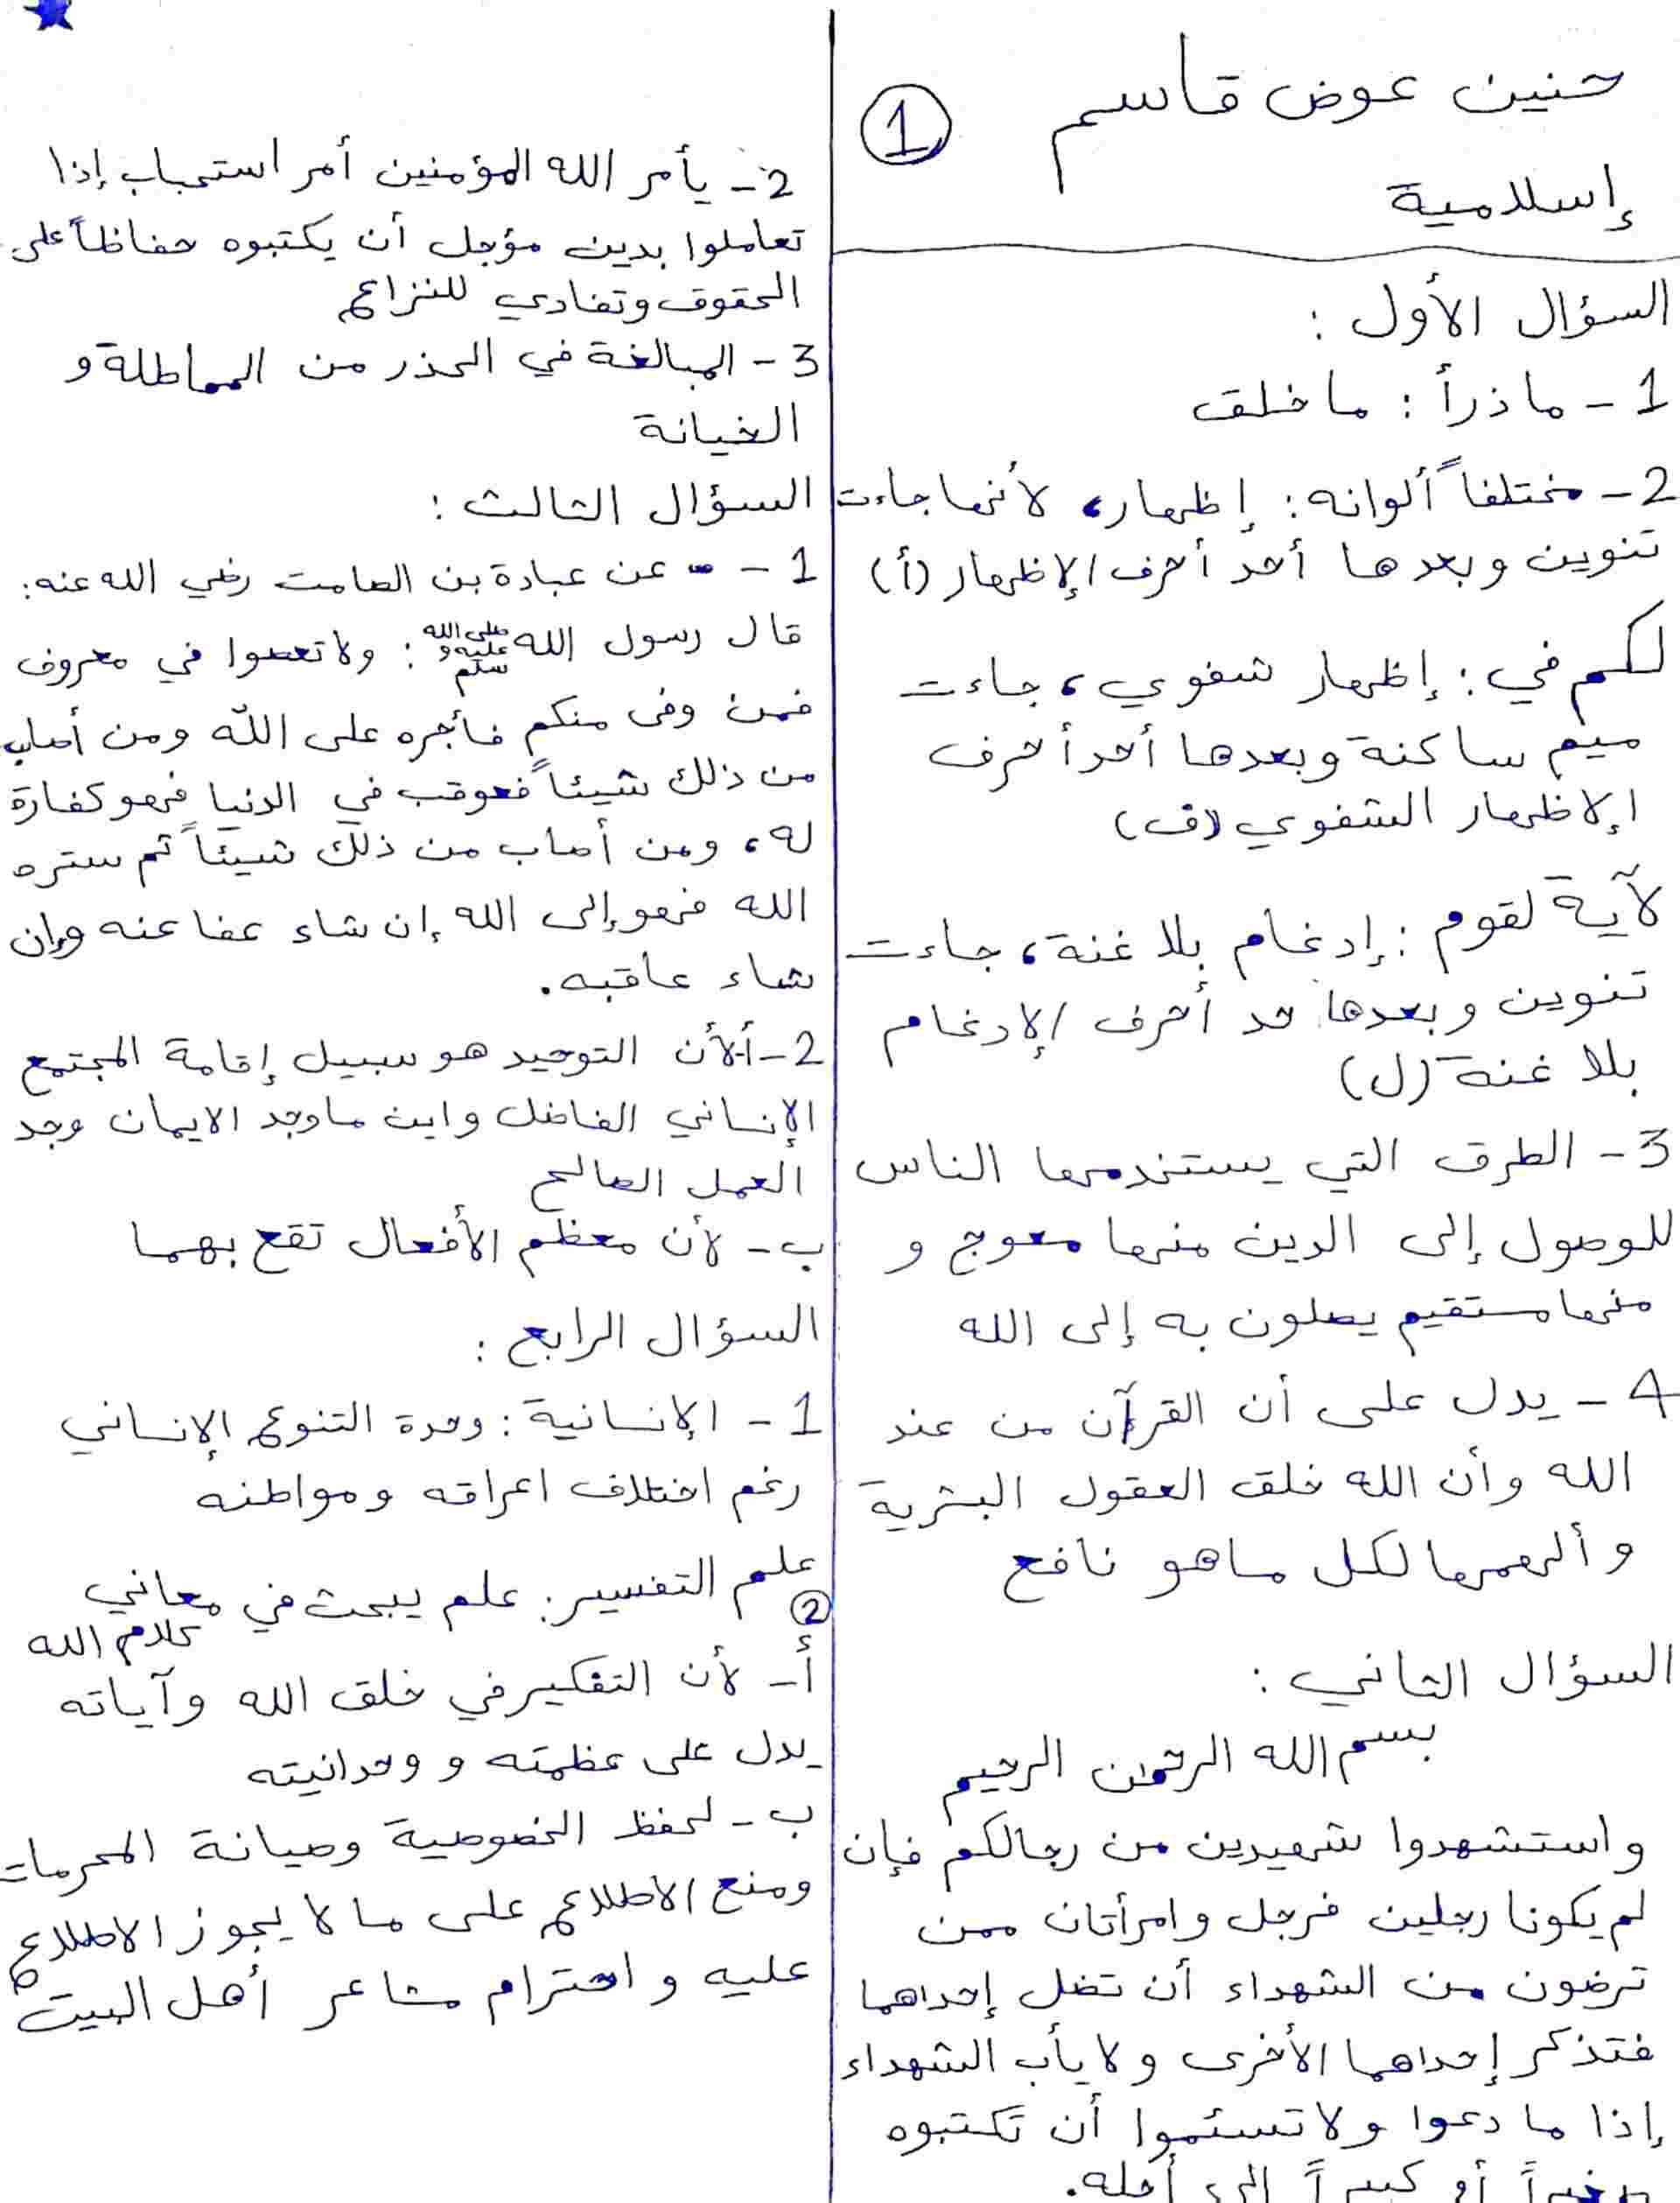 حنين عوض قاسم
1
إسلامية
السؤال الأول :
1 - ما ذرأ : ما خلق
2 - مختلفاً ألوانه : إظهار، لأنها جاءت
تنوين وبعدها أحد أحرف الإظهار (أ)
لكم في : إظهار شفوي، جاءت
ميم ساكنة وبعدها أحد أحرف
الإظهار الشفوي (ف)
لآية لقوم : إدغام بلا غنة، جاءت
تنوين وبعدها حد أحرف الإدغام
بلا غنة (ل)
3 - الطرق التي يستخدمها الناس
للوصول إلى الدين منها معوج و
منها مستقيم يصلون به إلى الله
4 - يدل على أن القرآن من عند
الله وأن الله خلق العقول البشرية
وألهمها لكل ما هو نافع
السؤال الثاني :
بسم الله الرحمن الرحيم
واستشهدوا شهيدين من رجالكم فإن
لم يكونا رجلين فرجل وامرأتان ممن
ترضون من الشهداء أن تضل إحداهما
فتذكر إحداهما الأخرى ولا يأب الشهداء
إذا ما دعوا ولا تسئموا أن تكتبوه
صغيراً أو كبيراً إلى أجله.
2 - يأمر الله المؤمنين أمر استحباب إذا
تعاملوا بدين مؤجل أن يكتبوه حفاظاً على
الحقوق وتفادي للنزاع
3 - المبالغة في الحذر من المماطلة و
الخيانة
السؤال الثالث :
1 - عن عبادة بن الصامت رضي الله عنه :
قال رسول الله صلى الله عليه وسلم : ولا تعصوا في معروف
فمن وفى منكم فأجره على الله ومن أصاب
من ذلك شيئاً فعوقب في الدنيا فهو كفارة
له، ومن أصاب من ذلك شيئاً ثم ستره
الله فهو إلى الله إن شاء عفا عنه وإن
شاء عاقبه.
2 - أ- لأن التوحيد هو سبيل إقامة المجتمع
الإنساني الفاضل واين ما وجد الايمان وجد
العمل الصالح
ب - لأن معظم الأفعال تقع بهما
السؤال الرابع :
1 - الإنسانية : وحدة التنوع الإنساني
رغم اختلاف اعراقه ومواطنه
علم التفسير : علم يبحث في معاني
كلام الله
2
أ - لأن التفكير في خلق الله وآياته
يدل على عظمته و وحدانيته
ب - لحفظ الخصوصية وصيانة المحرمات
ومنع الاطلاع على ما لا يجوز الاطلاع
عليه و احترام مشاعر أهل البيت